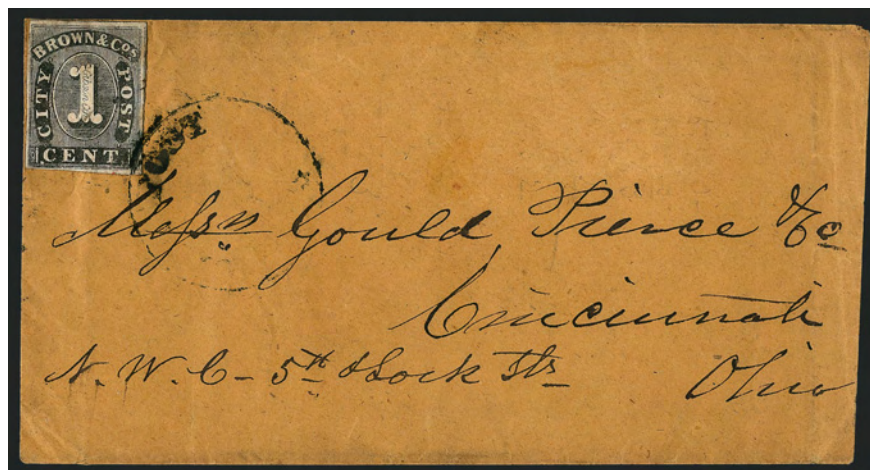 BROWN & Cos.
CITY POST
1
CENT
POST
Messrs Gould, Pierce & Co
Cincinnati
N. W. C - 5th & Lock Sts
Ohio